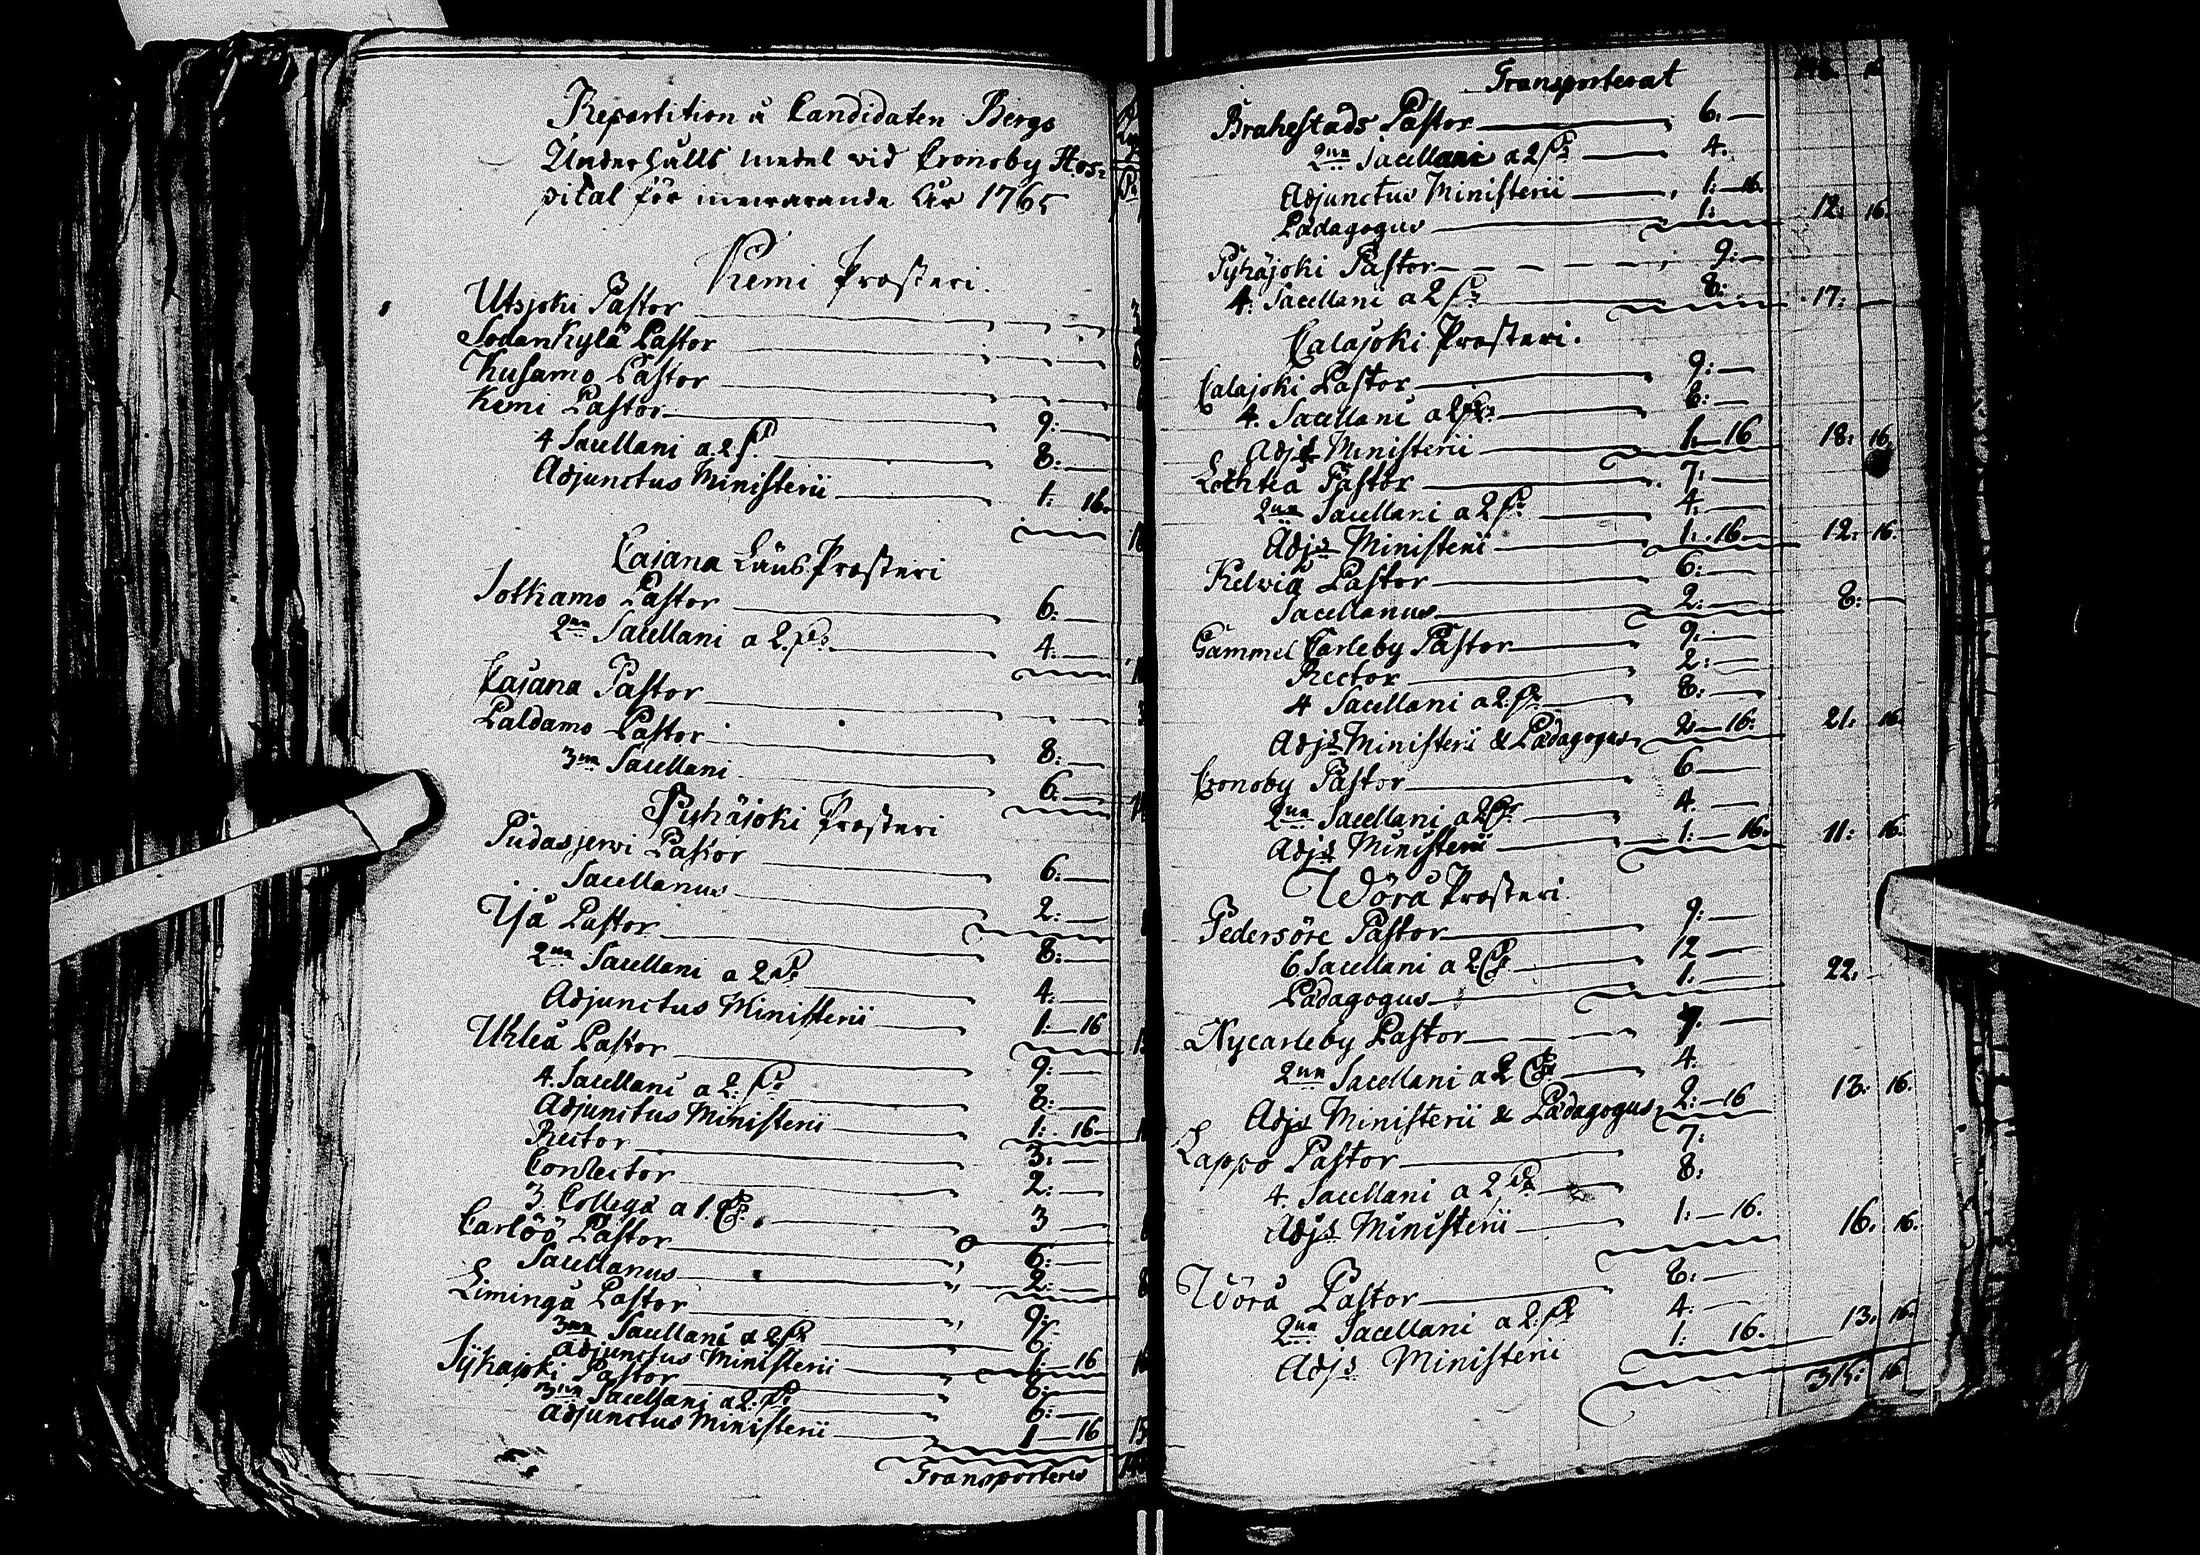 Repartition å Candidaten Bergs
Underhålls medel vid Cronoby Hos-
pital för innewarande År 1765
Kemi Prosteri.
Utsjoki Pastor
Sodankylä Pastor
Kusamo Pastor
Kemi Pastor 9:
4 Sacellani a 2 pl. 8:
Adjunctus Ministerii 1: 16.
Cajana Läns Prosteri
Sotkamo Pastor 6:
2ne Sacellani a 2. pl. 4:
Cajana Pastor
Paldamo Pastor 8:
3ne Sacellani 6:
Pyhäjoki Prosteri
Pudasjerwi Pastor 6:
Sacellanus 2:
Ijå Pastor 8:
2ne Sacellani a 2 pl. 4:
Adjunctus Ministerii 1: 16
Uhleå Pastor 9:
4. Sacellani a 2. pl. 8:
Adjunctus Ministerii 1: 16
Rector 3:
Conrector 2:
3 Collegæ a 1. pl. 3
Carlöö Pastor 6:
Sacellanus 2:
Limingå Pastor 9:
3ne Sacellani a 2 pl. 6:
Adjunctus Ministerii 1: 16
Pastor 8:
3ne Sacellani a 2. pl. 6:
Adjunctus Ministerii 1 16
Transporteres
Transporterat
Brahestads Pastor 6:
2ne Sacellani a 2 pl. 4.
Adjunctus Ministerii 1: 16.
Pädagogus 1: 12: 16.
Pyhäjoki Pastor 9:
4. Sacellani a 2 pl. 8: 17:
Calajoki Prosteri.
Calajoki Pastor 9:
4. Sacellani a 2 pl. 8:
Adjs Ministerii 1. 16 18: 16.
Lochteå Pastor 7:
2ne Sacellani a 2 pl. 4.
Adjs Ministerii 1. 16 12: 16.
Kelwiå Pastor 6:
Sacellanus 2: 8:
Gammel Carleby Pastor 9:
Rector 2:
4 Sacellani a 2 pl. 8:
Adjs Ministerii & Pädagogus 2 16. 21: 16.
Cronoby Pastor 6
2ne Sacellani a 2 pl. 4.
Adjs Ministerii 1: 16. 11: 16.
Wörå Prosteri.
Pedersöre Pastor 9:
6 Sacellani a 2 pl. 12
Pädagogus 1. 22.
Nycarleby Pastor 7.
2ne Sacellani a 2 pl. 4.
Adjs Ministerii & Pädagogus 2: 16 13: 16.
Lappo Pastor 7:
4. Sacellani a 2 pl. 8:
Adjs Ministerii 1: 16. 16: 16.
Wörå Pastor 8:
2ne Sacellani a 2. pl. 4:
Adjs Ministerii 1: 16. 13: 16.
315: 16